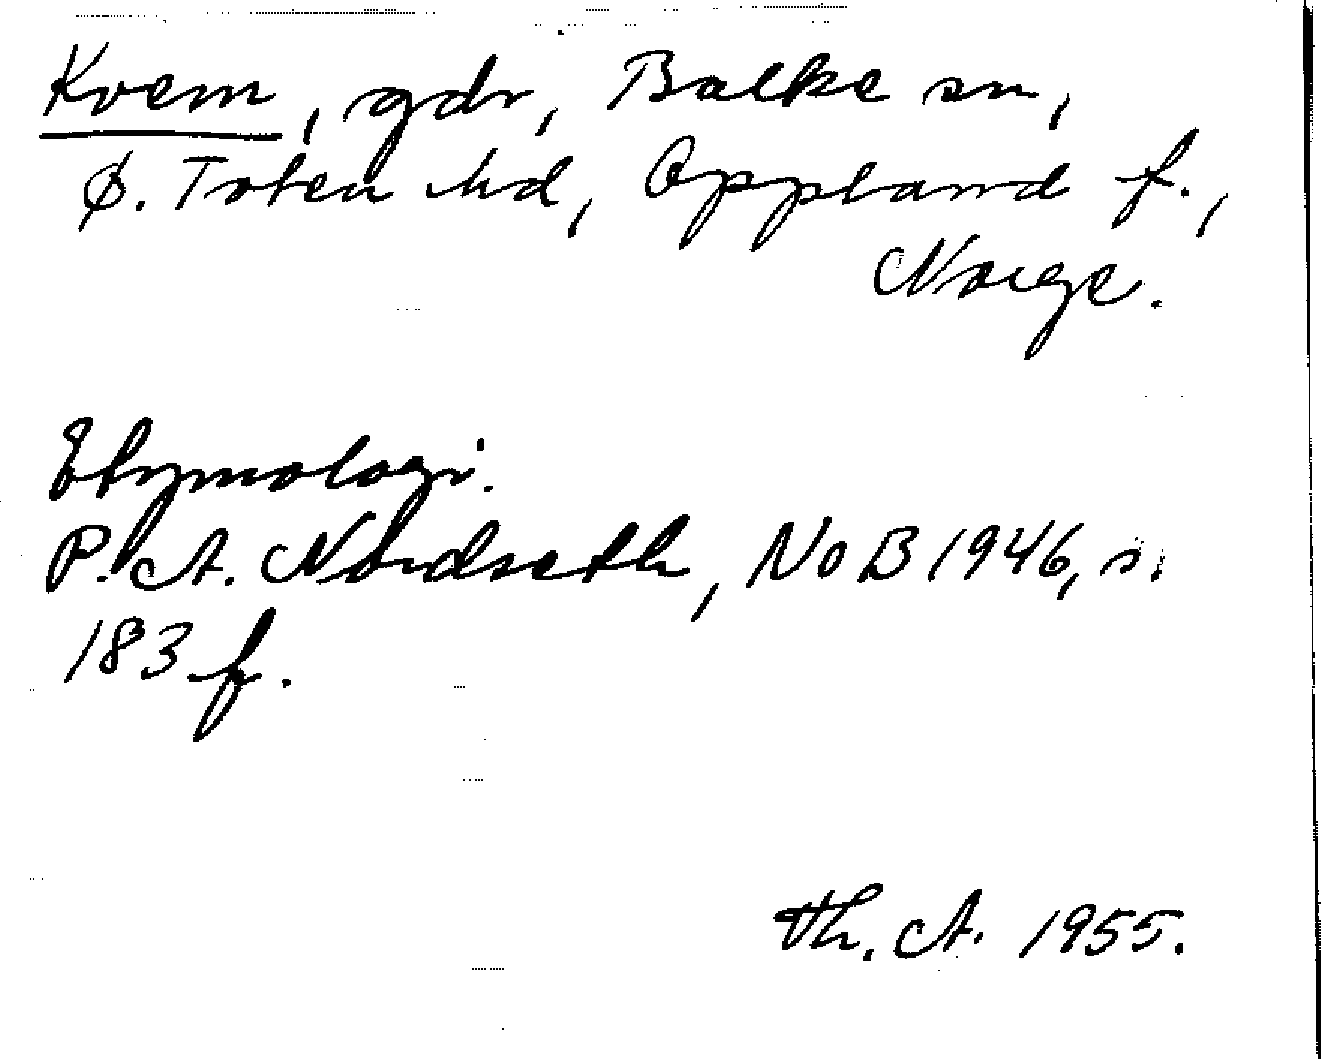 Kvem, gdr, Balke sn,
Ø. Toten hd, Oppland f.,
Norge.
Etymologi.
P. A. Nordseth, NoB 1946, s.
183 f.
Th. A. 1955.